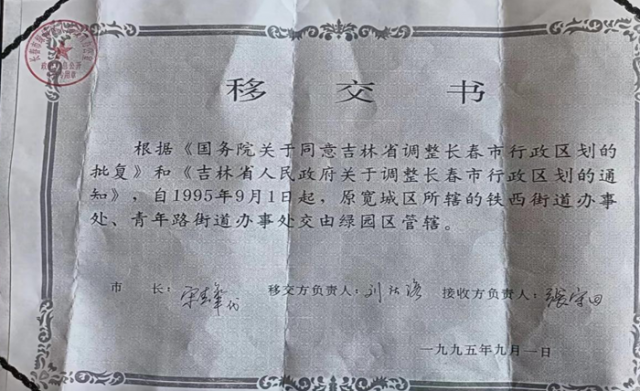 移交书
根据《国务院关于同意吉林省调整长春市行政区划的
批复》和《吉林省人民政府关于调整长春市行政区划的通
知》，自1995年9月1日起，原宽城区所辖的铁西街道办事
处、青年路街道办事处交由绿园区管辖。
市 长： 代 移交方负责人：刘 接收方负责人：张
一九九五年九月一日